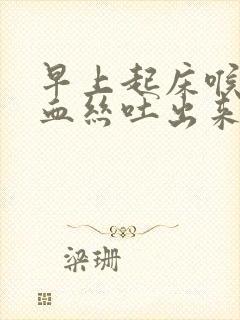 早上起床喉
血丝吐出来
梁珊